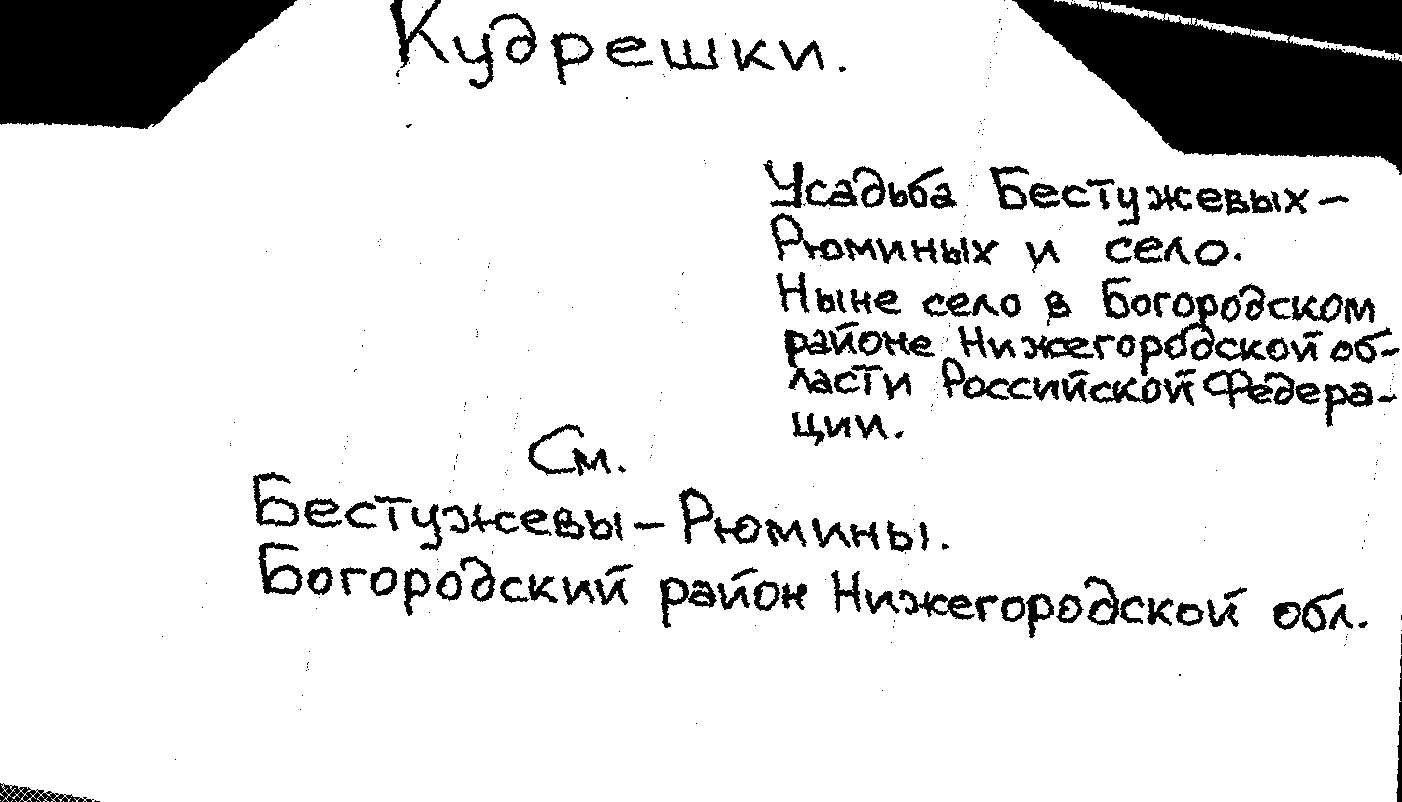 Кудрешки.
Усадьба Бестужевых-
Рюминых и село.
Ныне село в Богородском
районе Нижегородской об-
ласти Российской Федера-
ции.
См.
Бестужевы-Рюмины.
Богородский район Нижегородской обл.